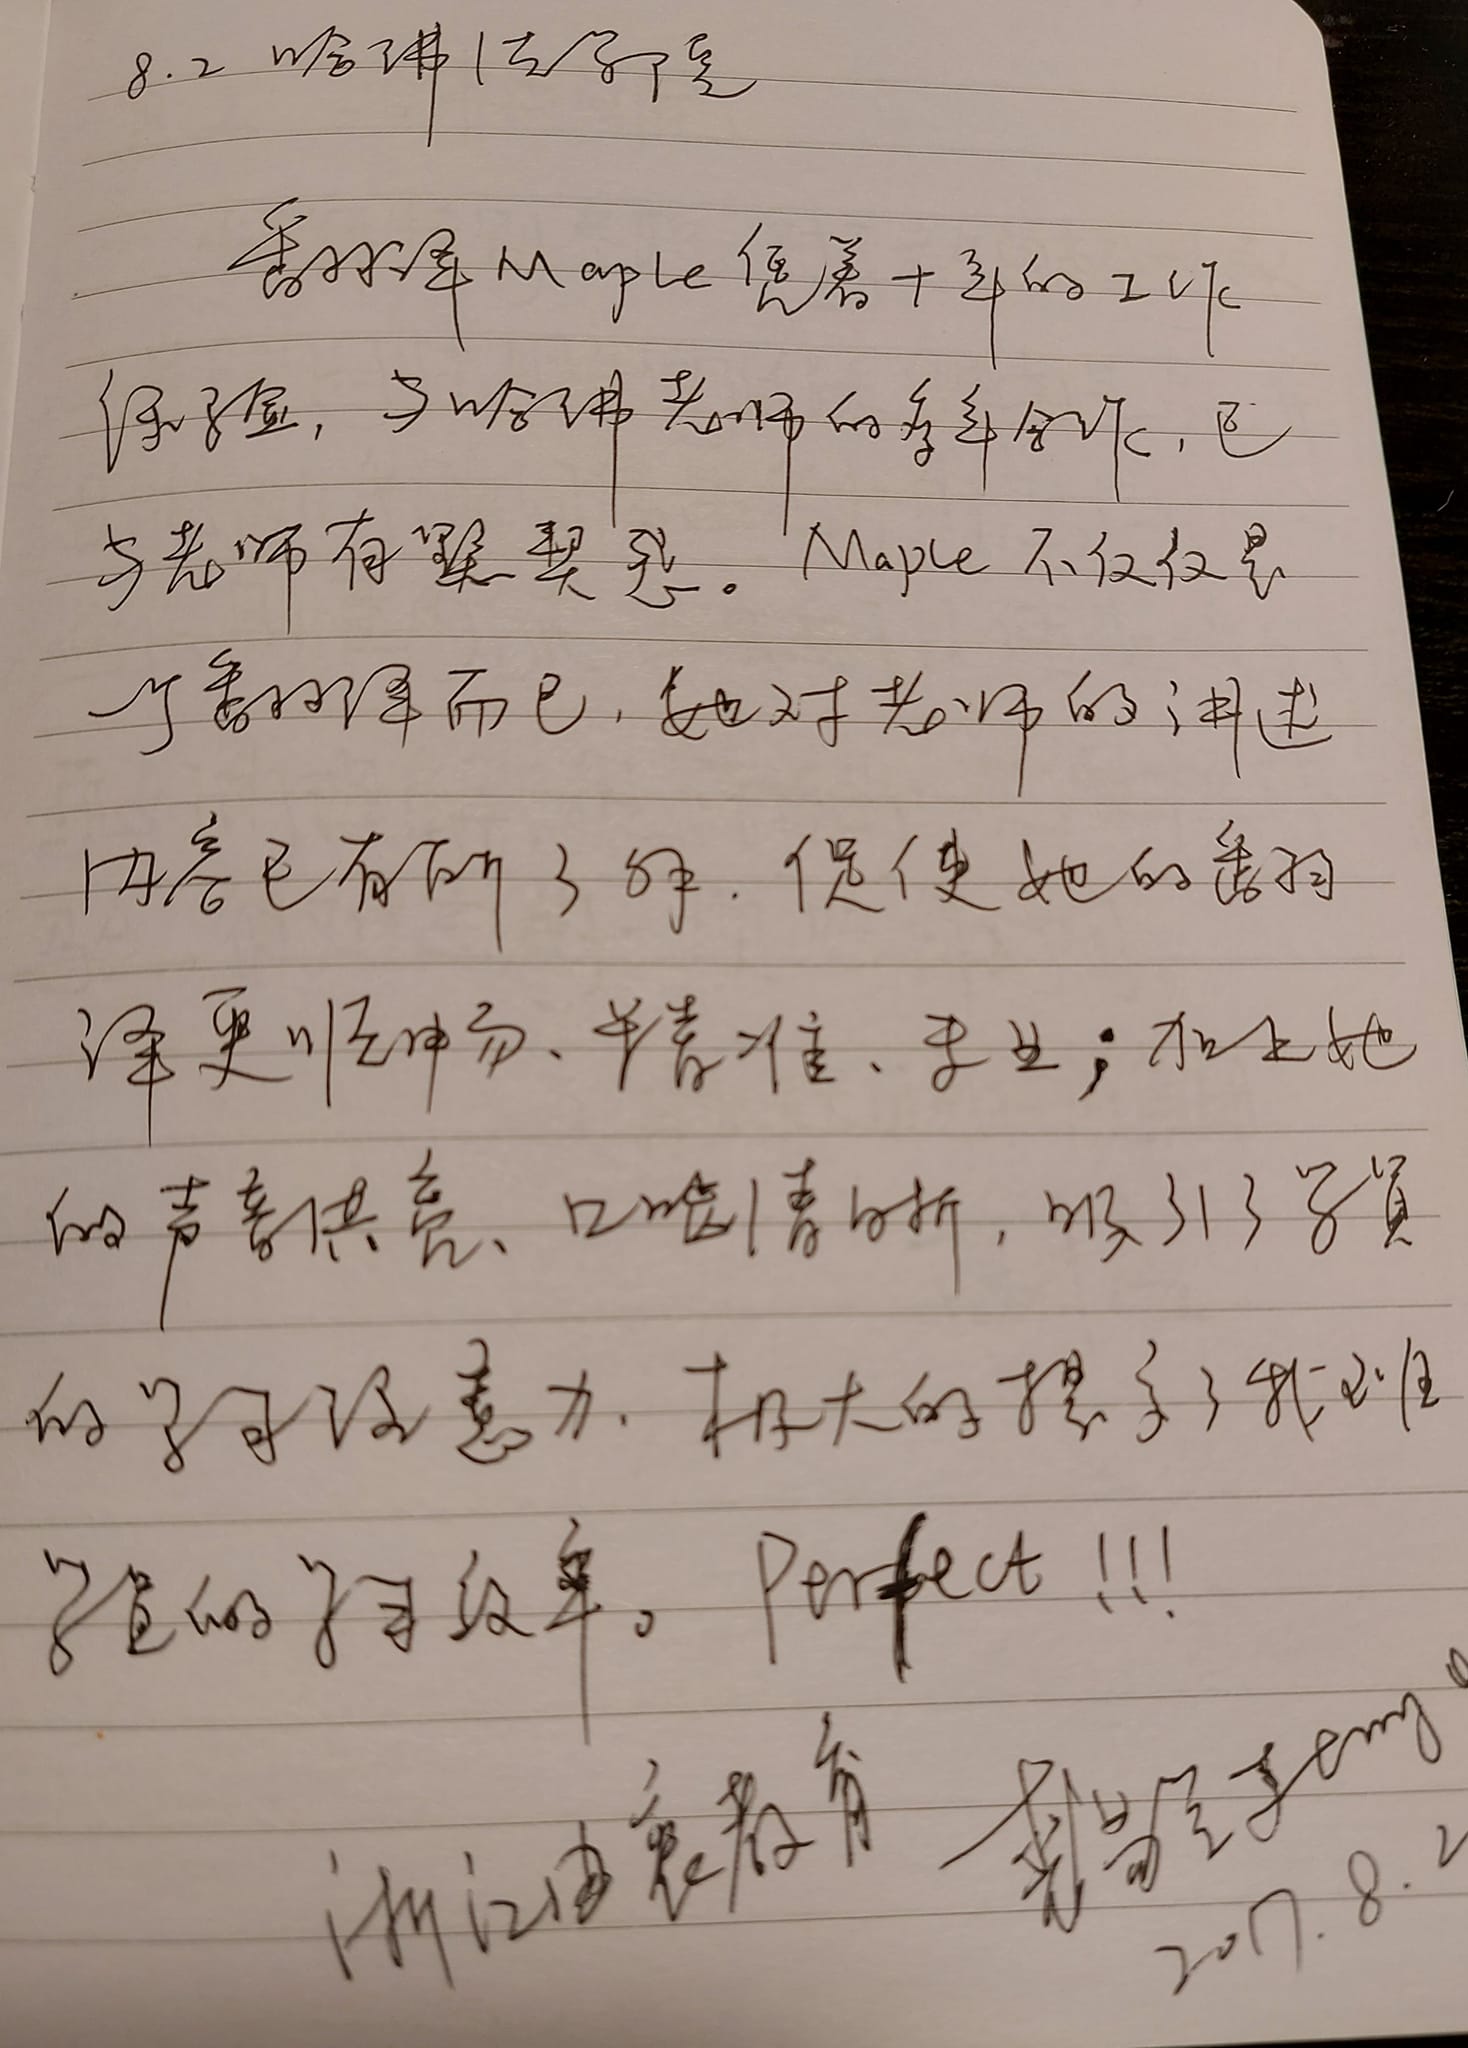 8.2 哈佛法学院
翻译Maple凭着十年的工作
经验，与哈佛老师的多年合作，已
与老师有默契感。Maple不仅仅是
个翻译而已，她对老师的讲述
内容已有所了解，促使她的翻
译更顺畅、精准、专业；加上她
的声音洪亮、口吃清晰，吸引了学员
的学习注意力，极大的提高了我这位
学员的学习效率。Perfect!!!
浙江由衷教育
2017.8.2